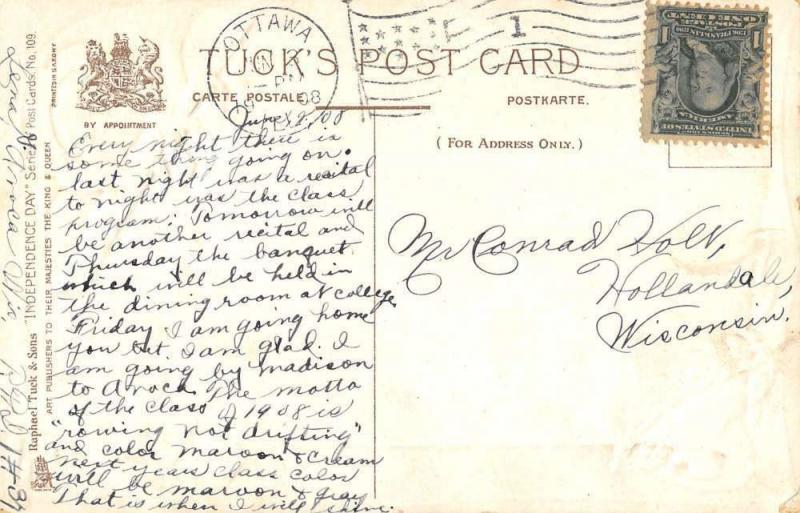 OTTAWA
08
TUCK'S POST CARD
CARTE POSTALE.
POSTKARTE.
(FOR ADDRESS ONLY.)
BY APPOINTMENT
PRINTED IN SAXONY
Raphael Tuck & Sons "INDEPENDENCE DAY" Series of Post Cards, No. 109.
ART PUBLISHERS TO THEIR MAJESTIES THE KING & QUEEN
UNITED STATES OF AMERICA
1 1
POSTAGE
ONE CENT
June
Every night there is
some thing going on.
last night was a recital
to night was the class
program. Tomorrow will
be another recital and
Thursday the banquet
which will be held in
the dining room at college
Friday I am going home
you bet. I am glad. I
am going by madison
to Avoca. The motto
of the class of 1908 is
"rowing not drifting"
and color maroon & cream
next years class color
will be maroon & gray
That is when I will shine.
Avoca Wis.
Mr Conrad Holt,
Hollandale,
Wisconsin.